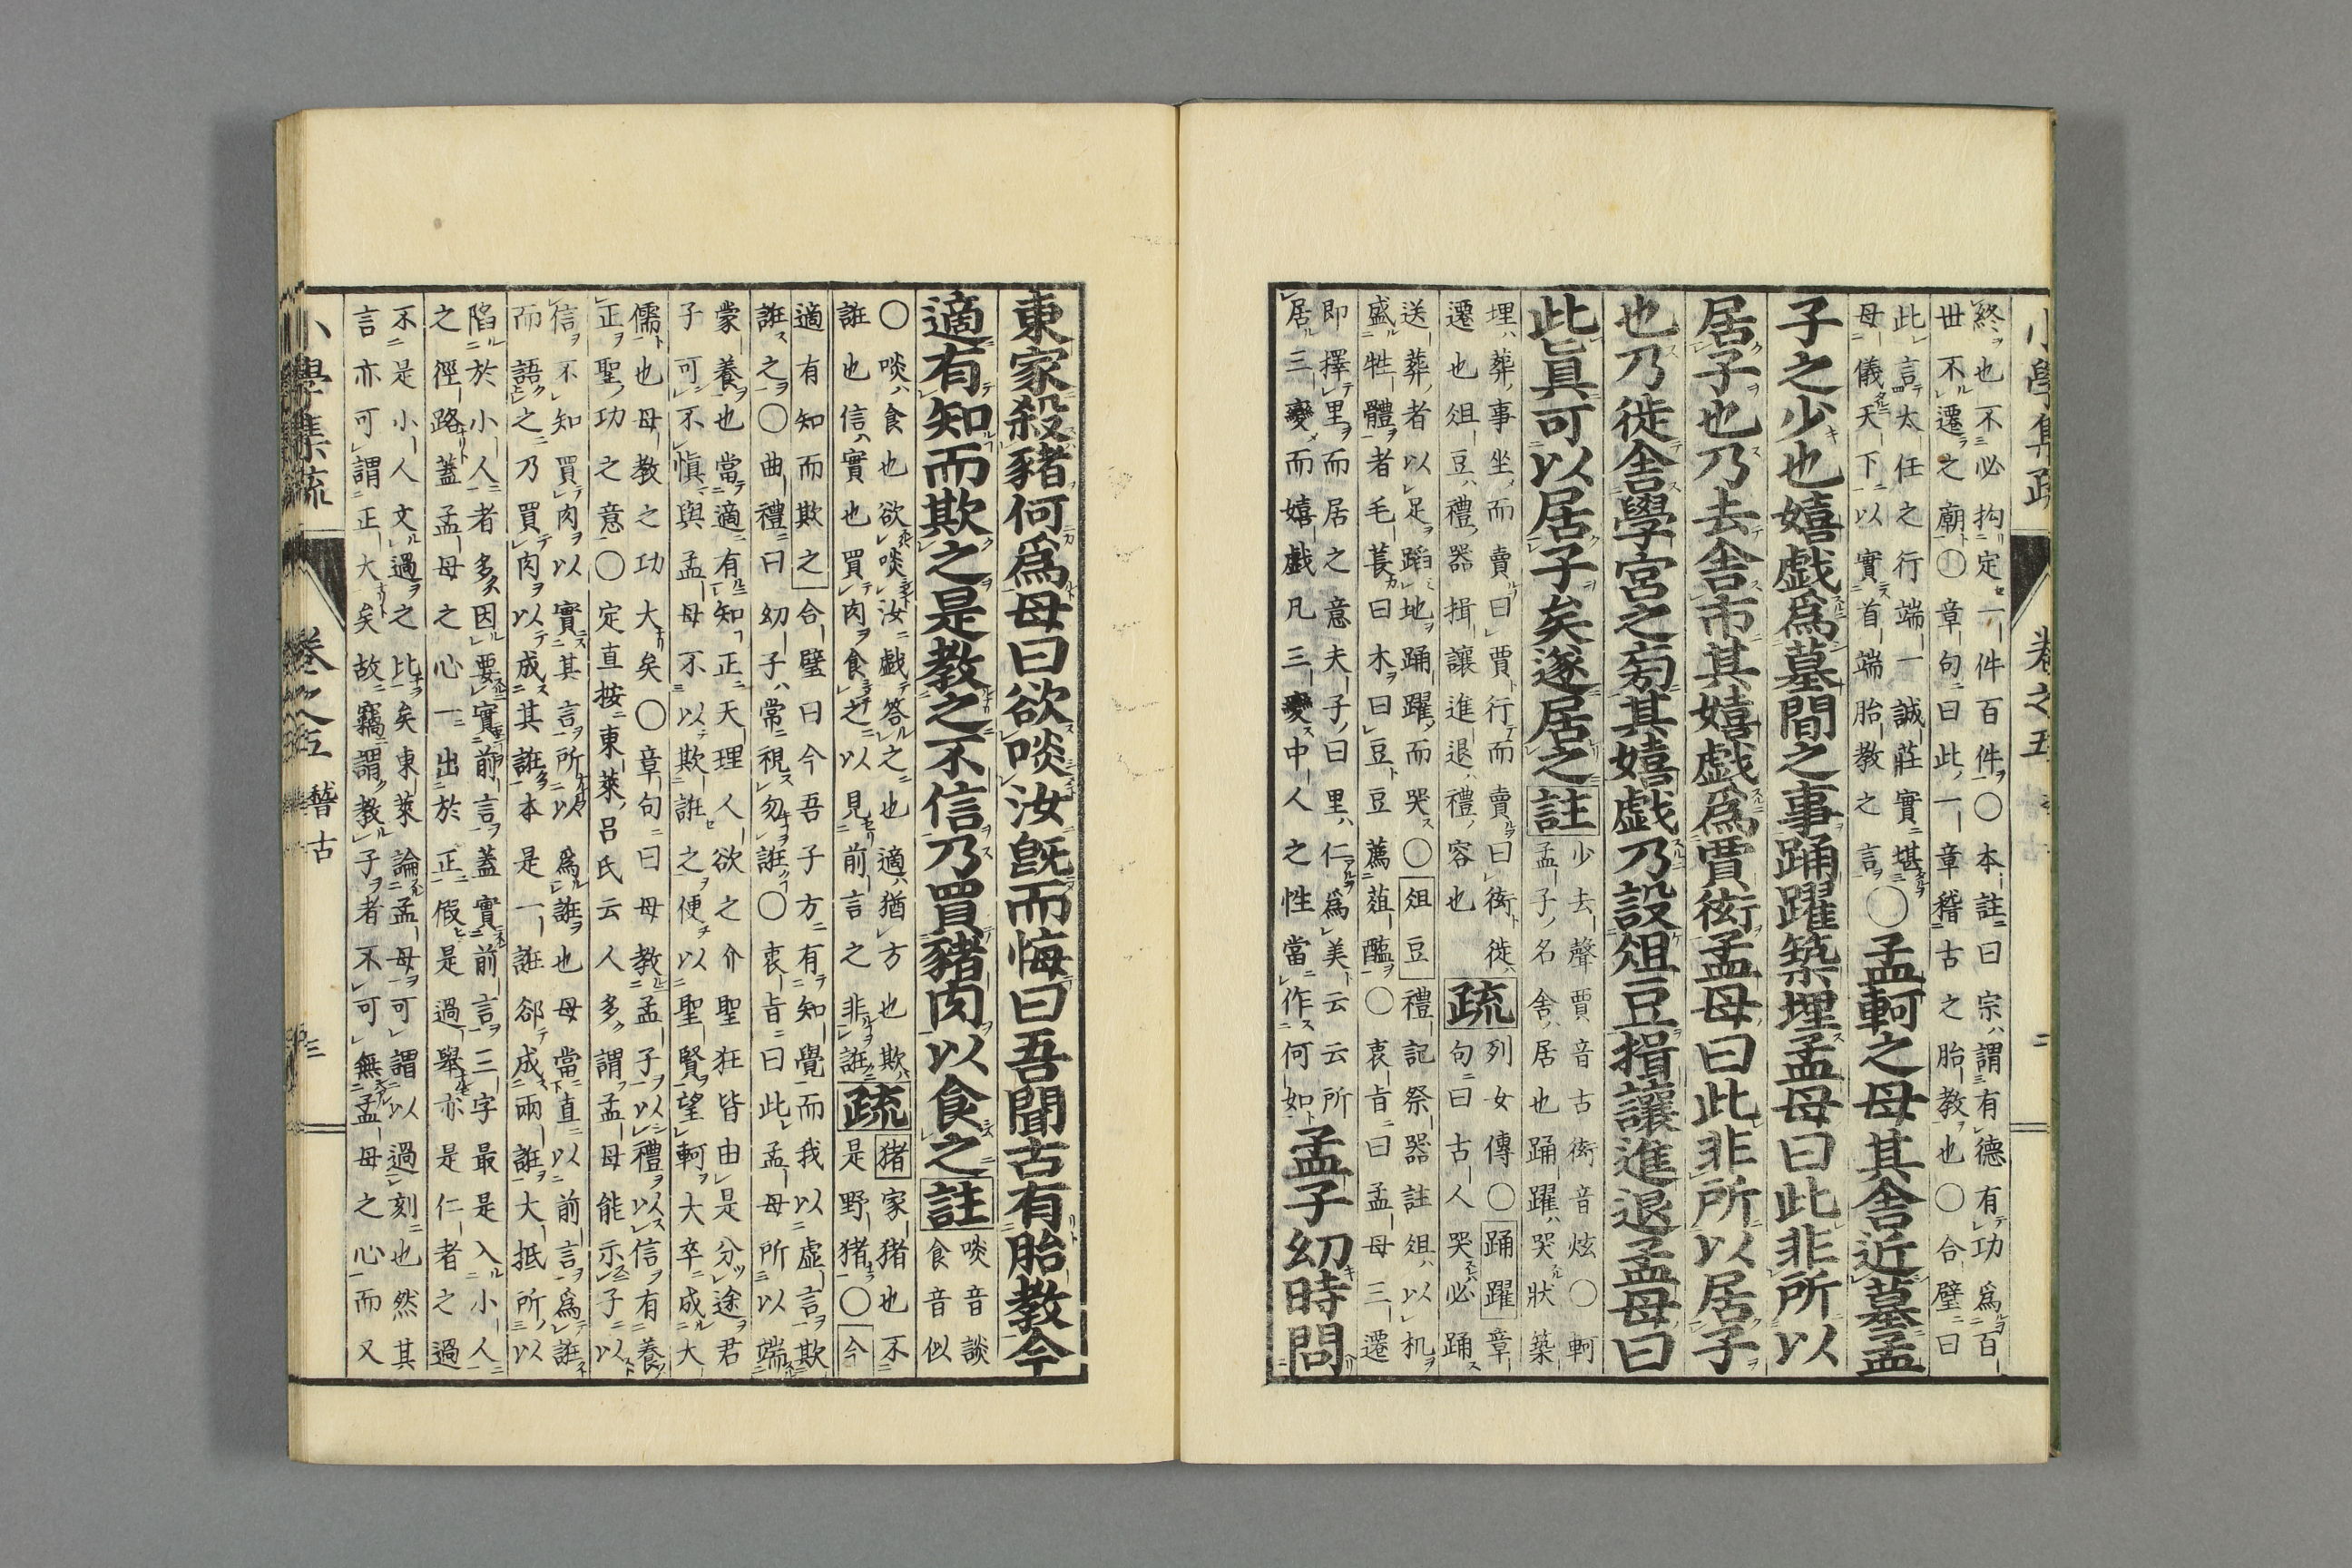 小學集疏 卷之五 二
終也不必拘定一件百件〇本註曰宗謂有德有功爲百
世不遷之廟〇章句曰此一章稽古之胎教也〇合璧曰
此言太任之行端一誠莊實堪
母儀天下以實首端胎教之言〇孟軻之母其舍近墓孟
子之少也嬉戲爲墓間之事踊躍築埋孟母曰此非所以
居子也乃去舍市其嬉戲爲賈衒孟母曰此非所以居子
也乃徙舍學宮之旁其嬉戲乃設俎豆揖讓進退孟母曰
此眞可以居子矣遂居之註少去聲賈音古衒音炫〇軻
孟子名舍居也踊躍哭狀築
埋葬事坐而賣曰賈行而賣曰衒徙
遷也俎豆禮器揖讓進退禮容也
疏列女傳〇踊躍章
句曰古人哭必踊
送葬者以足蹈地踊躍而哭〇俎豆禮記祭器註俎以机
盛牲體者毛萇曰木曰豆豆薦菹醢〇衷旨曰孟母三遷
即擇里而居之意夫子曰里仁爲美云云所
居三變而嬉戲凡三變中人之性當作何如
孟子幼時問
東家殺豬何爲母曰欲啖汝旣而悔曰吾聞古有胎教今
適有知而欺之是教之不信乃買豬肉以食之註啖音談
食音似
〇啖食也欲啖汝戲答之也適猶方也欺
誑也信實也買肉食之以見前言之非誑
疏猪家猪也不
是野猪〇今
適有知而欺之合璧曰今吾子方有知覺而我以虛言欺
誑之〇曲禮曰幼子常視勿誑〇衷旨曰此孟母所以端
蒙養也當適有知正天理人欲之介聖狂皆由是分途君
子可不愼與孟母不以欺誑之便以聖賢望軻大卒成大
儒也母教之功大矣〇章句曰母教孟子以禮以信有養
正聖功之意〇定直按東萊呂氏云人多謂孟母能示子以
信不知買肉以實其言所以爲誑也母當直以前言爲誑
而語之乃買肉以成其誑本是一誑郤成兩誑大抵所以
陷於小人者多因要實前言蓋實前言三字最是入小人
之徑路蓋孟母之心一出於正假是過舉亦是仁者之過
不是小人文過之比矣東萊論孟母可謂以過刻也然其
言亦可謂正大矣故竊謂教子者不可無孟母之心而又
小學集疏 卷之五 稽古 三